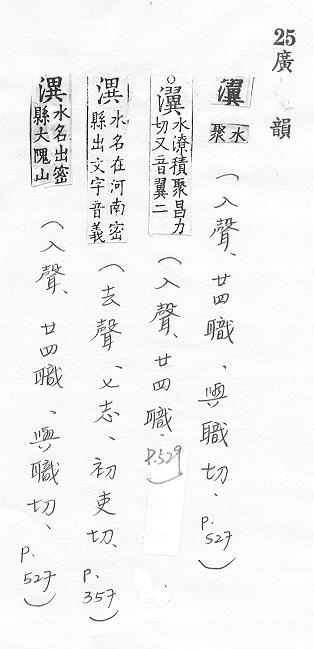 25廣韻
瀷水聚(入聲、廿四職、與職切、P.527)
瀷水潦積聚昌力切又音翼二(入聲、廿四職、P.529)
潩水名在河南密縣出文字音義(去聲、七志、初吏切、P.357)
潩水名出密縣大隗山(入聲、廿四職、與職切、P.527)